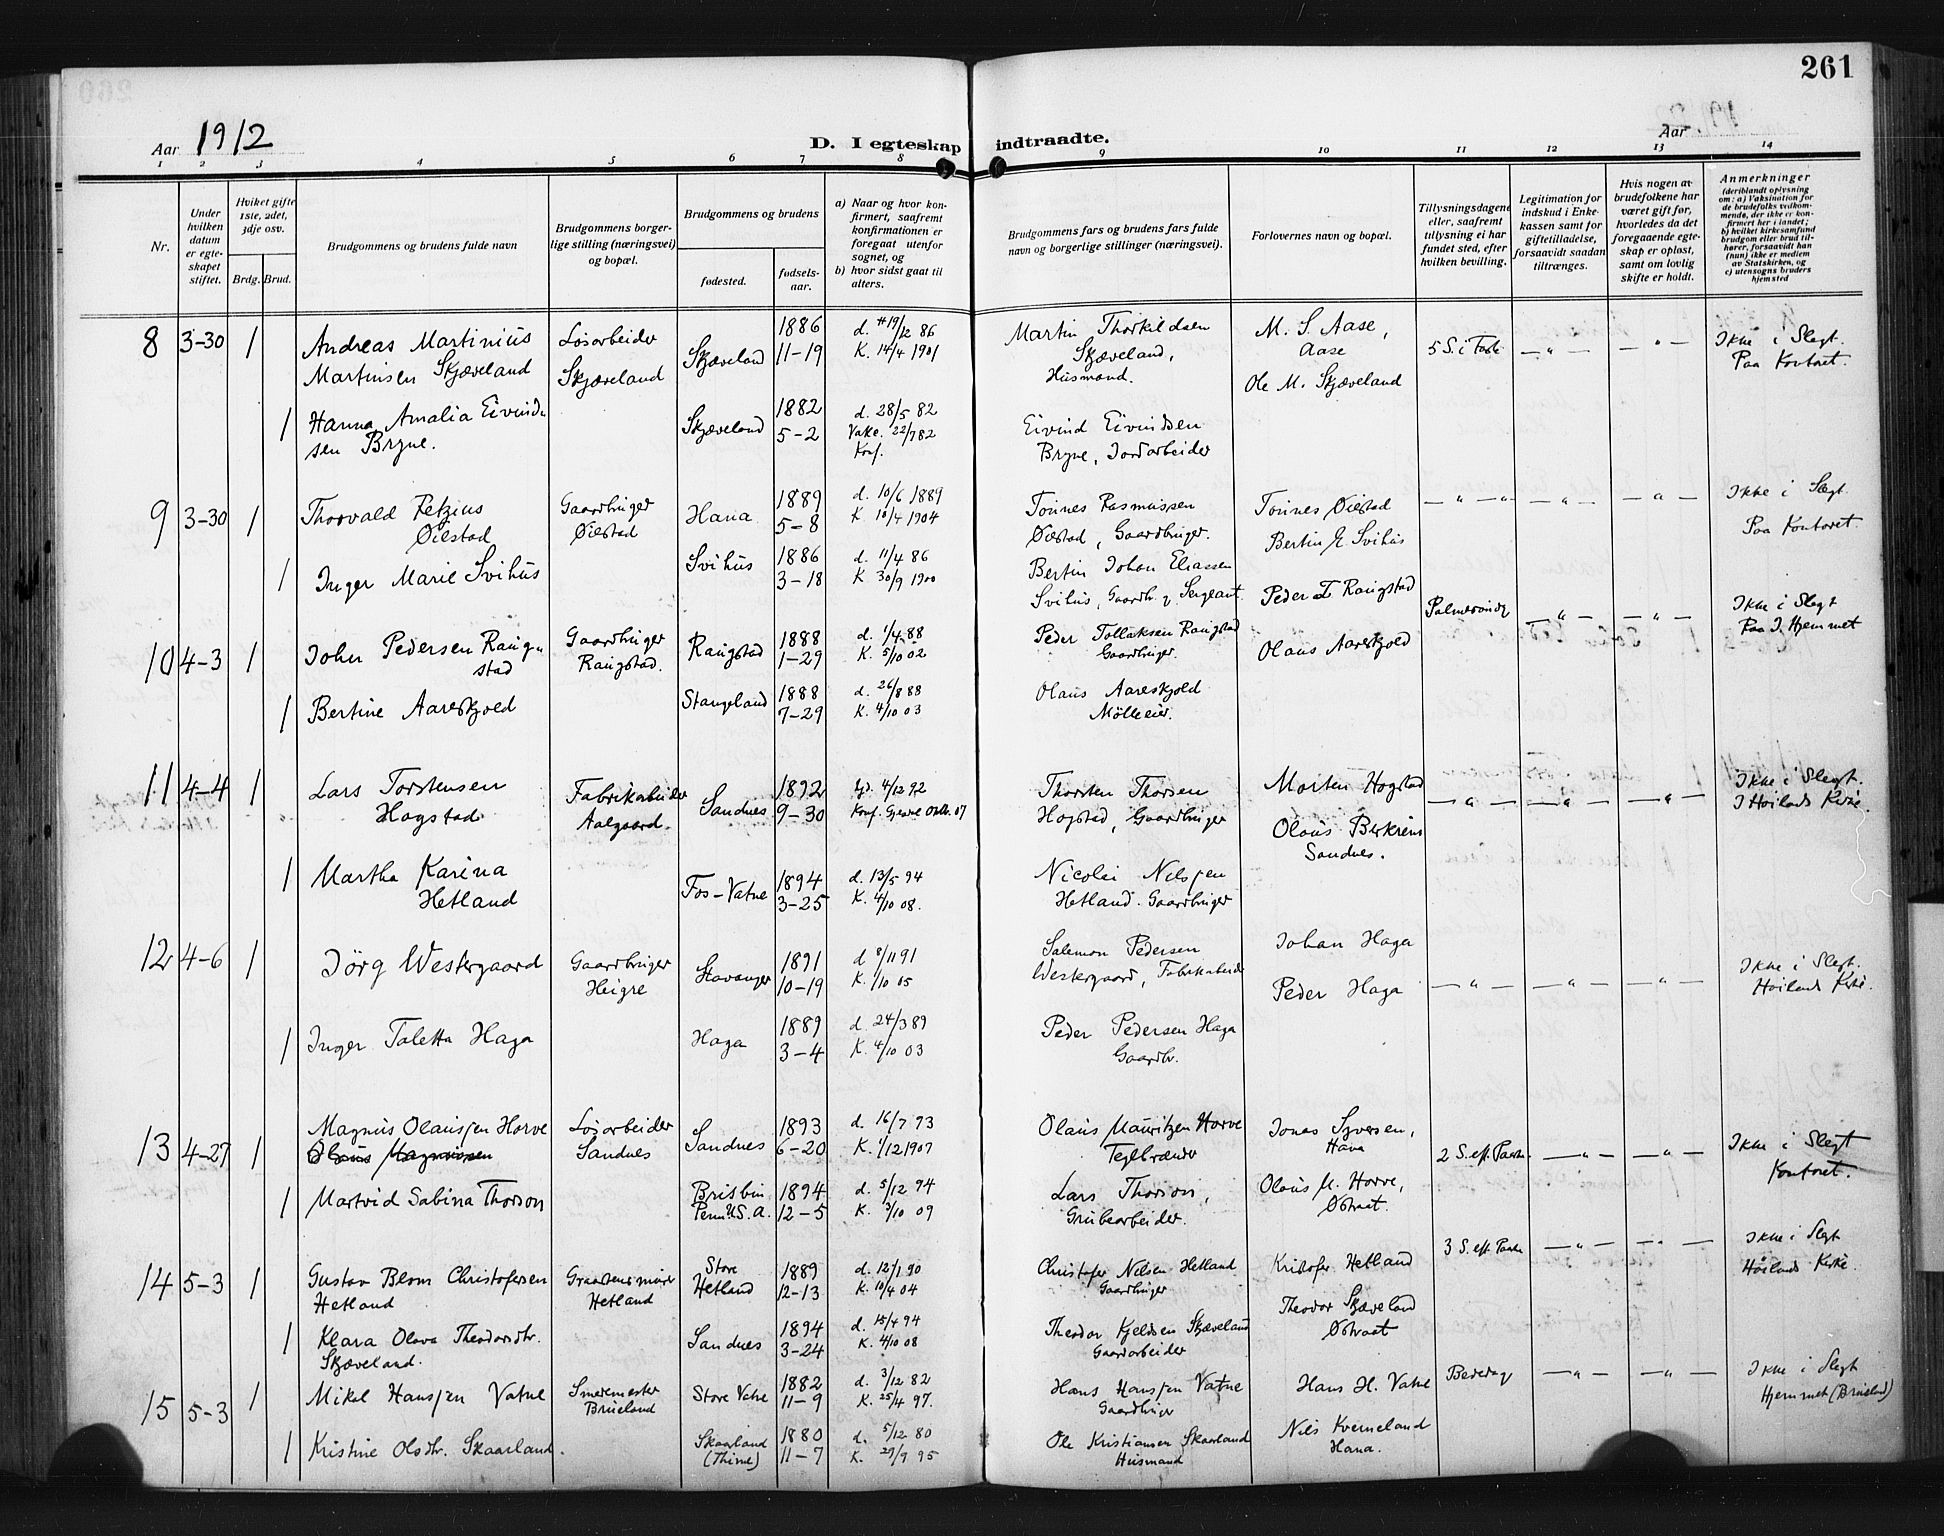 261
Aar 1912
D. I egteskap indtraadte.
Aar
1 2 3 4 5 6 7 8 9 10 11 12 13 14
Nr.
Under hvilken datum er egteskapet stiftet.
Hviket gifte 1ste, 2det, 3dje osv.
Brdg. Brud.
Brudgommens og brudens fulde navn
Brudgommens borgerlige stilling (næringsvei) og bopæl.
Brudgommens og brudens
fødested.
fødselsaar.
a) Naar og hvor konfirmert, saafremt konfirmationen er foregaat utenfor sognet, og
b) hvor sidst gaat til alters.
Brudgommens fars og brudens fars fulde navn og borgerlige stillinger (næringsvei).
Forlovernes navn og bopæl.
Tillysningsdagene eller, saafremt tillysning ei har fundet sted, efter hvilken bevilling.
Legitimation for indskud i Enkekassen samt for giftetilladelse, forsaavidt saadan tiltrænges.
Hvis nogen av brudefolkene har været gift før, hvorledes da det foregaaende egteskap er opløst, samt om lovlig skifte er holdt.
Anmerkninger (deriblandt oplysning om: a) Vaksination for de brudefolks vedkommende, der ikke er konfirmert her i landet; b) hvilket kirkesamfund brudgom eller brud tilhører, forsaavidt han (hun) ikke er medlem av Statskirken, og c) utensogns bruders hjemsted
8 3-30 1 Andreas Martinius Løsarbeider 1886 d. 19/12 86 Martin Thorkildsen M. S. Aase, Ikke i Slegt.
Martinsen Skjæveland Skjæveland Skjæveland 11-19 K. 14/4 1901 Skjæveland, Aase 5 S. i Faste — „ — — „ — Paa Kontoret.
Husmand. Ole M. Skjæveland
1 Hanna Amalia Eivind- Skjæveland 1882 d. 28/5 82 Eivind Eivindsen
sen Bryne. 5-2 Vakc. 22/7 82 Bryne, Jordarbeider
Konf.
9 3-30 1 Thorvald Petzius Gaardbruger Hana 1889 d. 10/6 1889 Tønnes Rasmussen Tønnes Øiestad — „ — „ — „ — — „ — Ikke i Slegt.
Øiestad Øiestad 5-8 K 10/4 1904 Øiestad, Gaardbruger. Bertin E. Svihus Paa Kontoret
1 Inger Marie Svihus Svihus 1886 d. 11/4 86 Bertin Johan Eliassen
3-18 K 30/9 1900 Svihus, Gaardb. g. Sergeant.
10 4-3 1 Johan Pedersen Raug- Gaardbruger Raugstad 1888 d. 1/4 88 Peder Tollaksen Raugstad Peder T Raugstad Palmesøndg — „ — — „ — Ikke i Slegt
stad Raugstad. 1-29 K. 5/10 02 Gaardbruger. Olaus Aareskjold Paa I. Hjemmet
1 Bertine Aareskjold Stangeland 1888 d. 26/8 88 Olaus Aareskjold
7-29 K. 4/10 03 Mølleeier.
11 4-4 1 Lars Torstensen Fabrikabeider Sandnes 1892 4/12 92 Thorsten Thorsen Morten Hogstad — „ — — „ — — „ — Ikke i Slegt.
Hogstad Aalgaard. 9-30 Konf. Gjesdal Oktb. 07 Hogstad, Gaardbruger Olaus Berkreim I Høilands Kirke.
Sandnes.
1 Martha Karina Fos-Vatne 1894 d. 13/5 94 Nicolai Nilsen
Hetland 3-25 K. 4/10 08. Hetland. Gaardbruger
12 4-6 1 Jörg Westergaard Gaardbruger Stavanger 1891 d 8/11 91 Salemon Pedersen Johan Haga Ikke i Slegt.
Heigre 10-19 K. 1/10 05 Westergaard, Fabrikabeid Peder Haga — „ — — „ — — „ — Høilands Kirke.
1 Inger Taletta Haga Haga 1889 d. 24/3 89 Peder Pedersen Haga
3-4 K. 4/10 03 Gaardbr.
13 4-27 1 Magnus Olaussen Horve Løsarbeider Sandnes 1893 d. 16/7 93 Olaus Mauritzen Horve Jonas Syversen, Ikke i Slegt
Olaus Magnussen Sandnes 6-20 K. 1/12 1907 Teglbrænder Hana 2 S. eft. Paaske — „ — — „ — Kontoret.
1 Martvid Sabina Thorson Brisbin 1894 d. 5/12 94 Lars Thorson, Olaus M. Horve,
Penn U.S.A. 12-5 K. 3/10 09 Grubearbeider. Østraat.
14 5-3 1 Gustav Blom Christofersen Graastensmurer Store Hetland 1889 d. 12/1 90 Christofer Nilsen Hetland Kristofer Hetland 3 S. eft. Paaske — „ — — „ — Ikke i Slegt
Hetland Hetland 12-13 K. 10/4 04 Gaardbruger Høilands Kirke.
1 Klara Olava Theodorsdtr. Sandnes 1894 d. 15/4 94 Theodor Kjeldsen Skjæveland Theodor Skjæveland
Skjæveland. 3-24 K. 4/10 08 Gaardarbeider Østraat
15 5-3 1 Mikal Hansen Vatne Smedmester Store Vatne 1882 d. 3/12 82 Hans Hansen Vatne Hans H. Vatne Bededag — „ — — „ — Ikke i Slegt
Brueland 11-9 K. 25/4 97. Gaardbruger Hjemmet (Brueland)
1 Kristine Olsdtr. Skaarland. Skaarland 1880 d. 5/12 80 Ole Kristiansen Skaarland Nils Kverneland
(Thime) 11-7 K. 29/9 95 Husmand Hana.